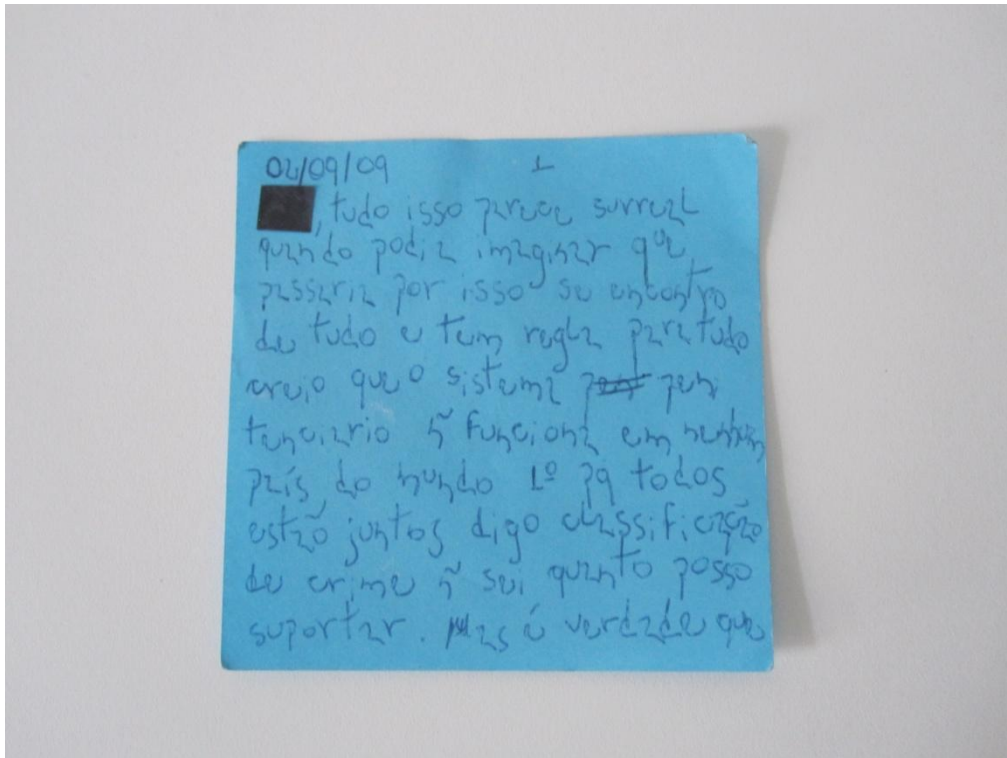 02/09/09 1
, tudo isso parece surreal
quando podia imaginar que
passaria por isso se encontra
de tudo e tem regla para tudo
creio que o sistema peni
tenciario ñ funciona em nenhum
país do mundo 1º pq todos
estão juntos digo classificação
de crime ñ sei quanto posso
suportar. Mas é verdade que